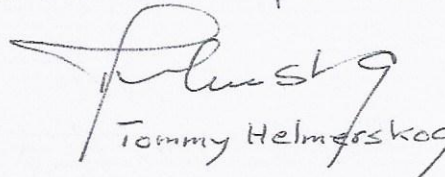 Tommy Helmerskog